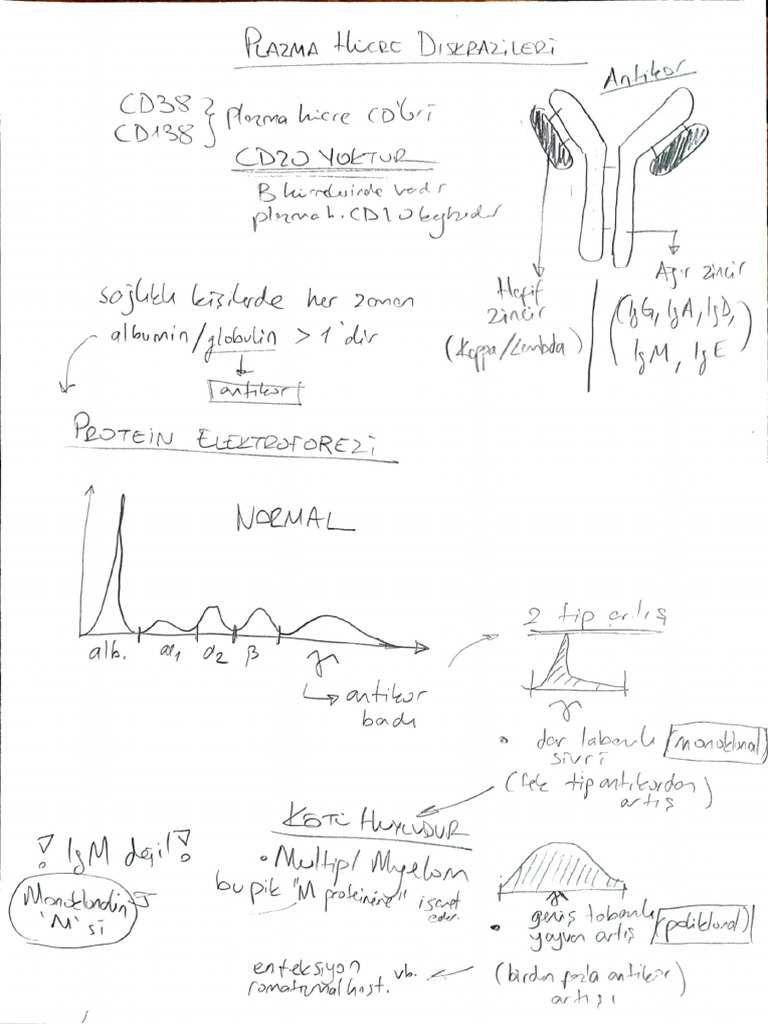 PLAZMA HÜCRE DİSKRAZİLERİ
Antikor
CD38
CD138
plazma hücre CD'leri
CD20 YOKTUR
B hücrelerinde vardır
plazma h. CD20
Hafif
zincir
(Kappa/Lambda)
Ağır zincir
(IgG, IgA, IgD,
IgM, IgE)
sağlıklı kişilerde her zaman
albumin/globulin > 1'dir
antikor
PROTEİN ELEKTROFOREZİ
NORMAL
alb. α1 α2 β γ
antikor
bandı
2 tip artış
γ
• dar tabanlı monoklonal
sivri
(tek tip antikordan
artış)
KÖTÜ HUYLUDUR
• Multipl Myelom
bu pik "M proteinine" işaret
eder.
! IgM değil !
Monoklonalin
'M' si
γ
• geniş tabanlı
yayvan artış poliklonal
(birden fazla antikor
artışı)
enfeksiyon
romatizmal hast. vb.